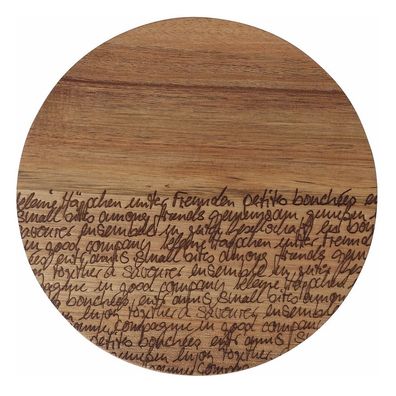 kleine Häppchen unter Freunden petites bouchées en
small bites among friends gemeinsam genießen
savourer ensemble in guter Gesellschaft en bon
in good company kleine Häppchen unter Freund
ées entre amis small bites among friends gemein
enjoy together à savourer ensemble in guter Ges
pagnie in good company kleine Häppchen
es bouchées entre amis small bites among
en enjoy together à savourer ensemble
bonne compagnie in good company
petites bouchées entre amis small
genießen enjoy together
compagnie